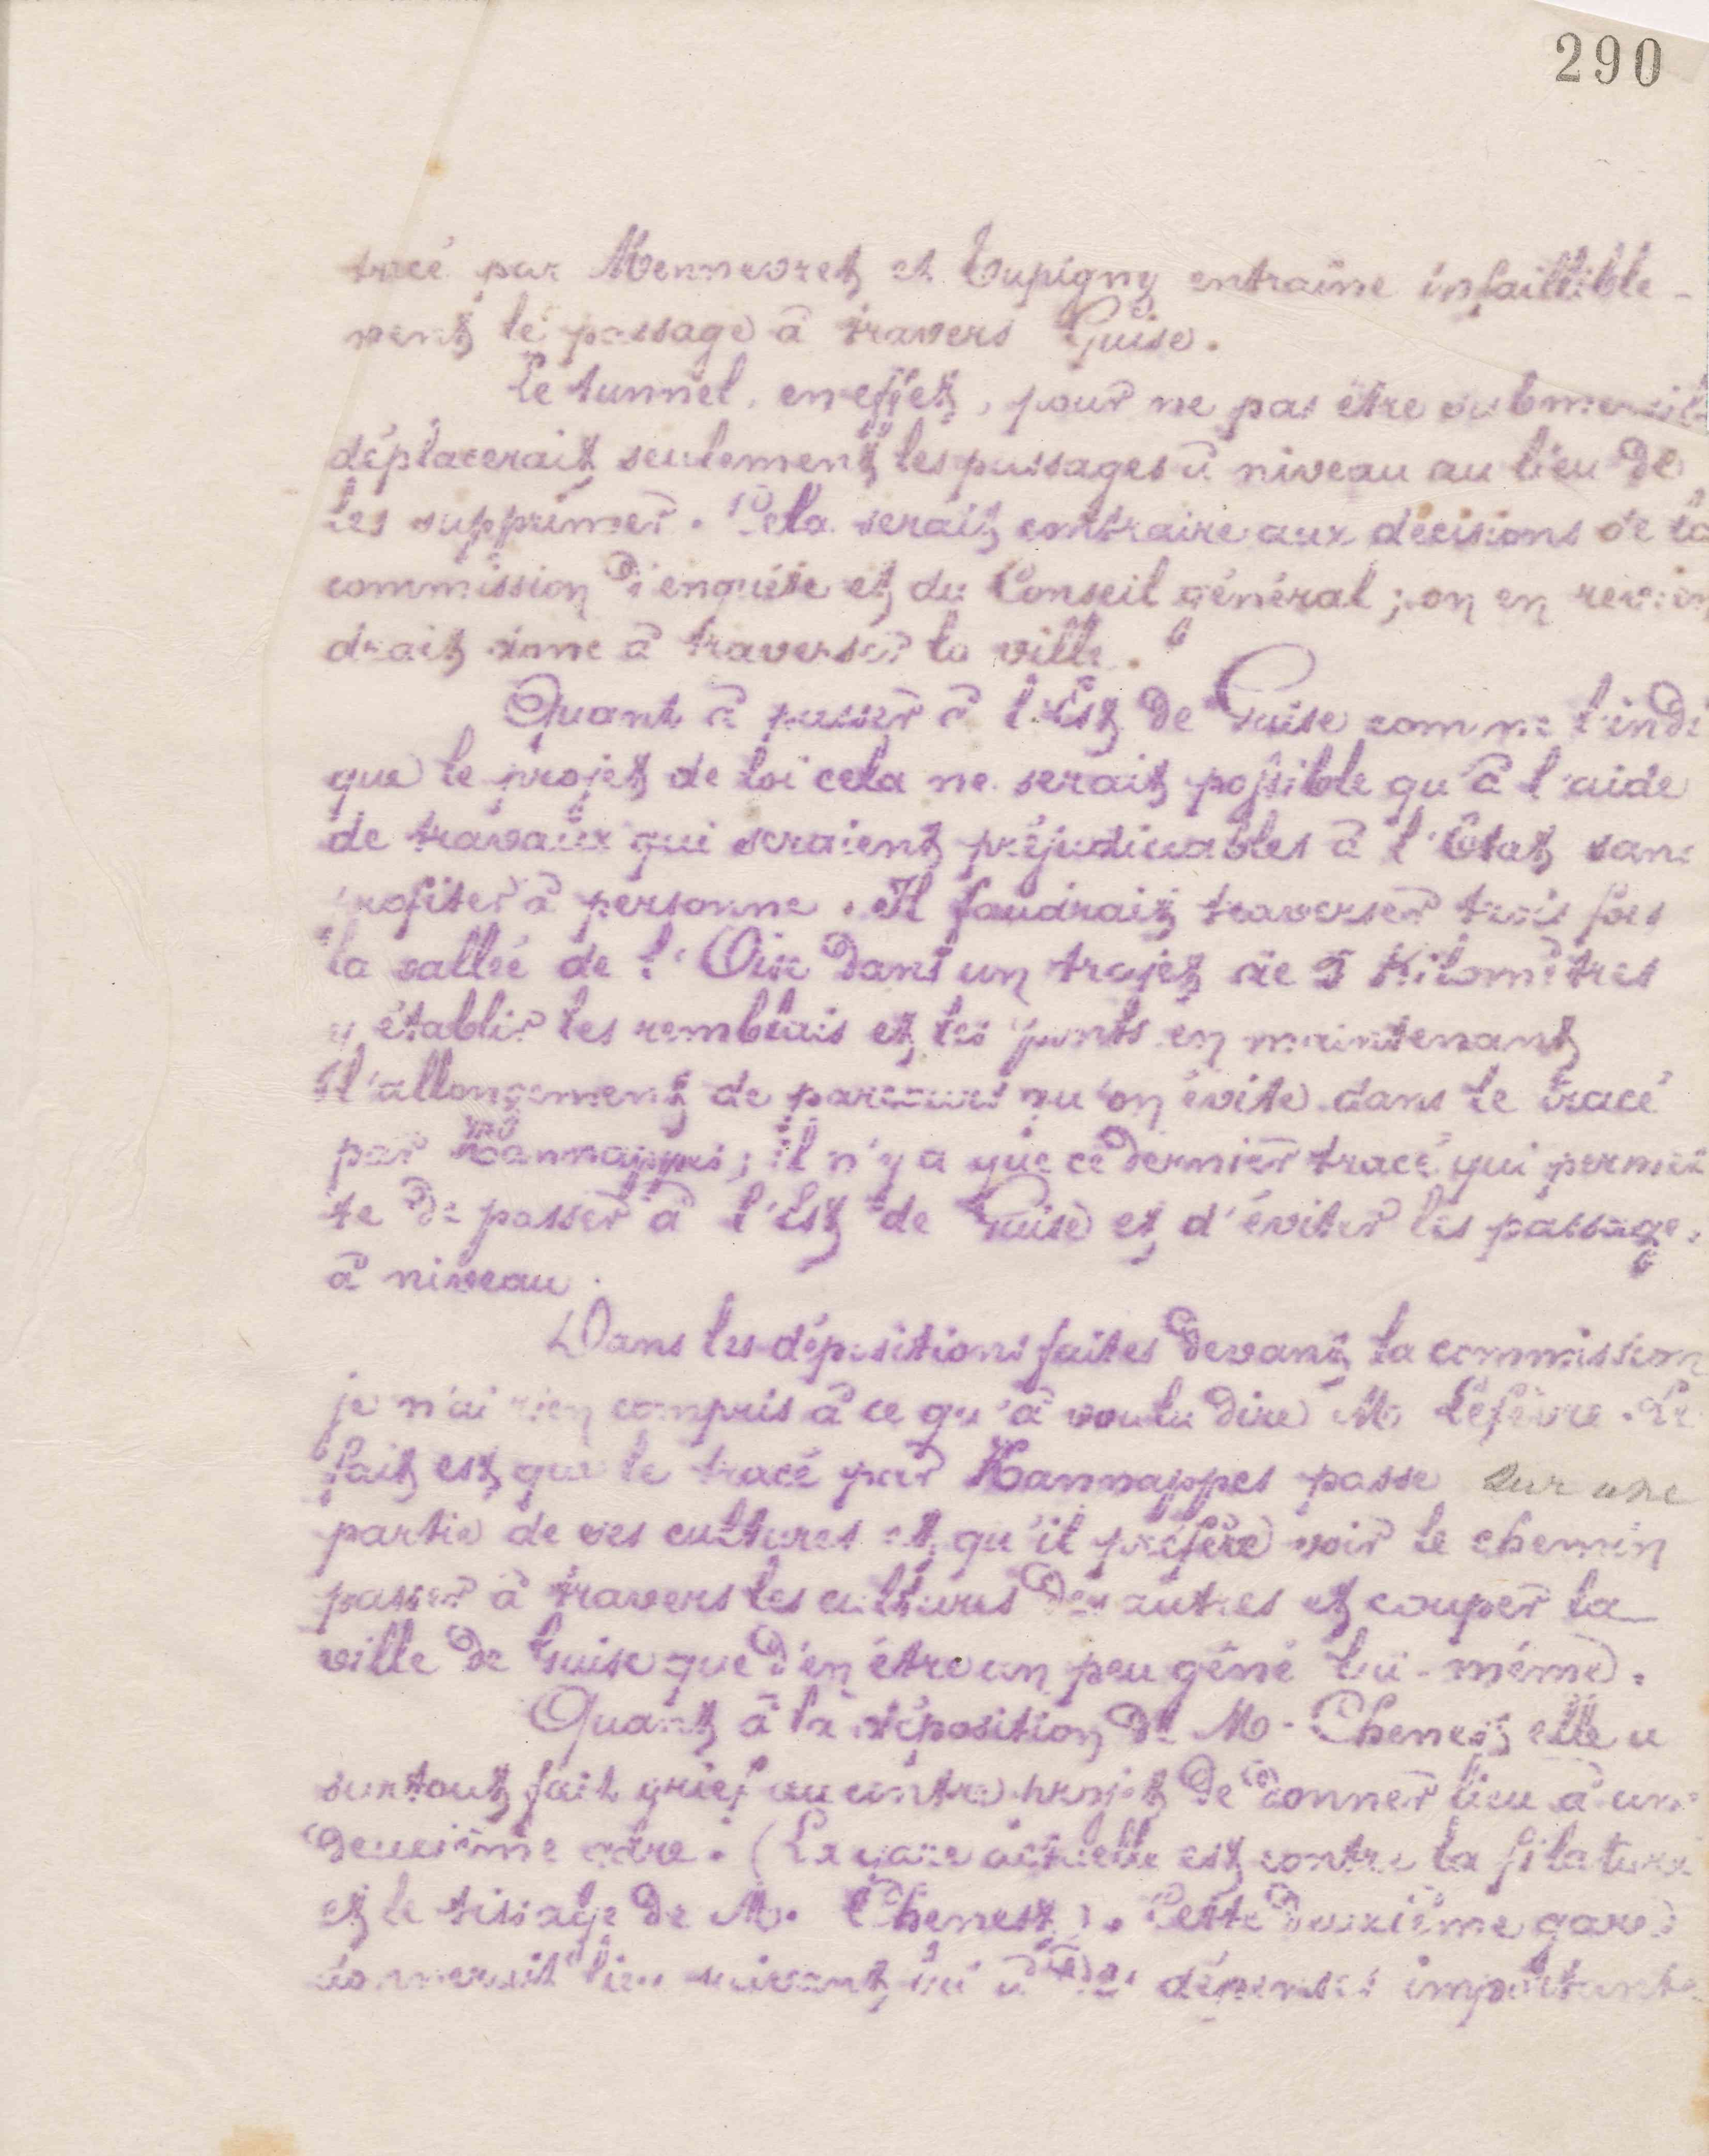 290
tracé par Mennevret et Tupigny entraîne infaillible-
ment le passage à travers Guise.
Le tunnel, en effet, pour ne pas être submersible
déplacerait seulement les passages à niveau au lieu de
les supprimer. Cela serait contraire aux décisions de la
commission d'enquête et du Conseil général ; on en revien
drait donc à traverser la ville.
Quant à passer à l'Est de Guise comme l'indi
que le projet de loi cela ne serait possible qu'à l'aide
de travaux qui seraient préjudiciables à l'État sans
profiter à personne. Il faudrait traverser trois fois
la vallée de l'Oise dans un trajet de 5 Kilomètres
y établir les remblais et les ponts en maintenant
l'allongement de parcours qu'on évite dans le tracé
par Hannappes ; il n'y a que ce dernier tracé qui permet
te de passer à l'Est de Guise et d'éviter les passages
à niveau.
Dans les dépositions faites devant la commission
je n'ai rien compris à ce qu'à voulu dire M. Lefèvre. Le
fait est que le tracé par Hannappes passe sur une
partie de ses cultures et qu'il préfère voir le chemin
passer à travers les cultures des autres et couper la
ville de Guise que d'en être un peu gêné lui-même.
Quant à la déposition de M. Chenest elle a
surtout fait grief au contre-projet de donner lieu à une
deuxième gare. (La gare actuelle est contre la filature
et le tissage de M. Chenest). Cette deuxième gare
donnerait lieu suivant lui à des dépenses importantes